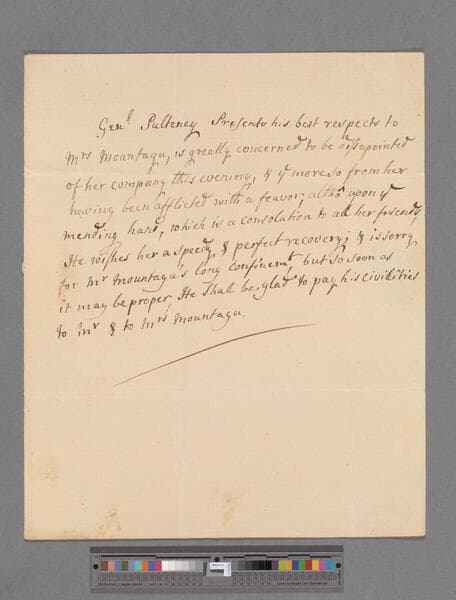 Gen.l Pulteney Presents his best respects to
Mrs Mountagu, is greatly concerned to be dissapointed
of her company this evening, & ye more so from her
having been afflicted with a feavor; altho' upon ye
mending hand, which is a consolation to all her friends,
He wishes her a speedy & perfect recovery; & is sorry
for Mr Mountagu's long confinemt, but so soon as
it may be proper, He shall be glad to pay his civilities
to Mr & to Mrs Mountagu.